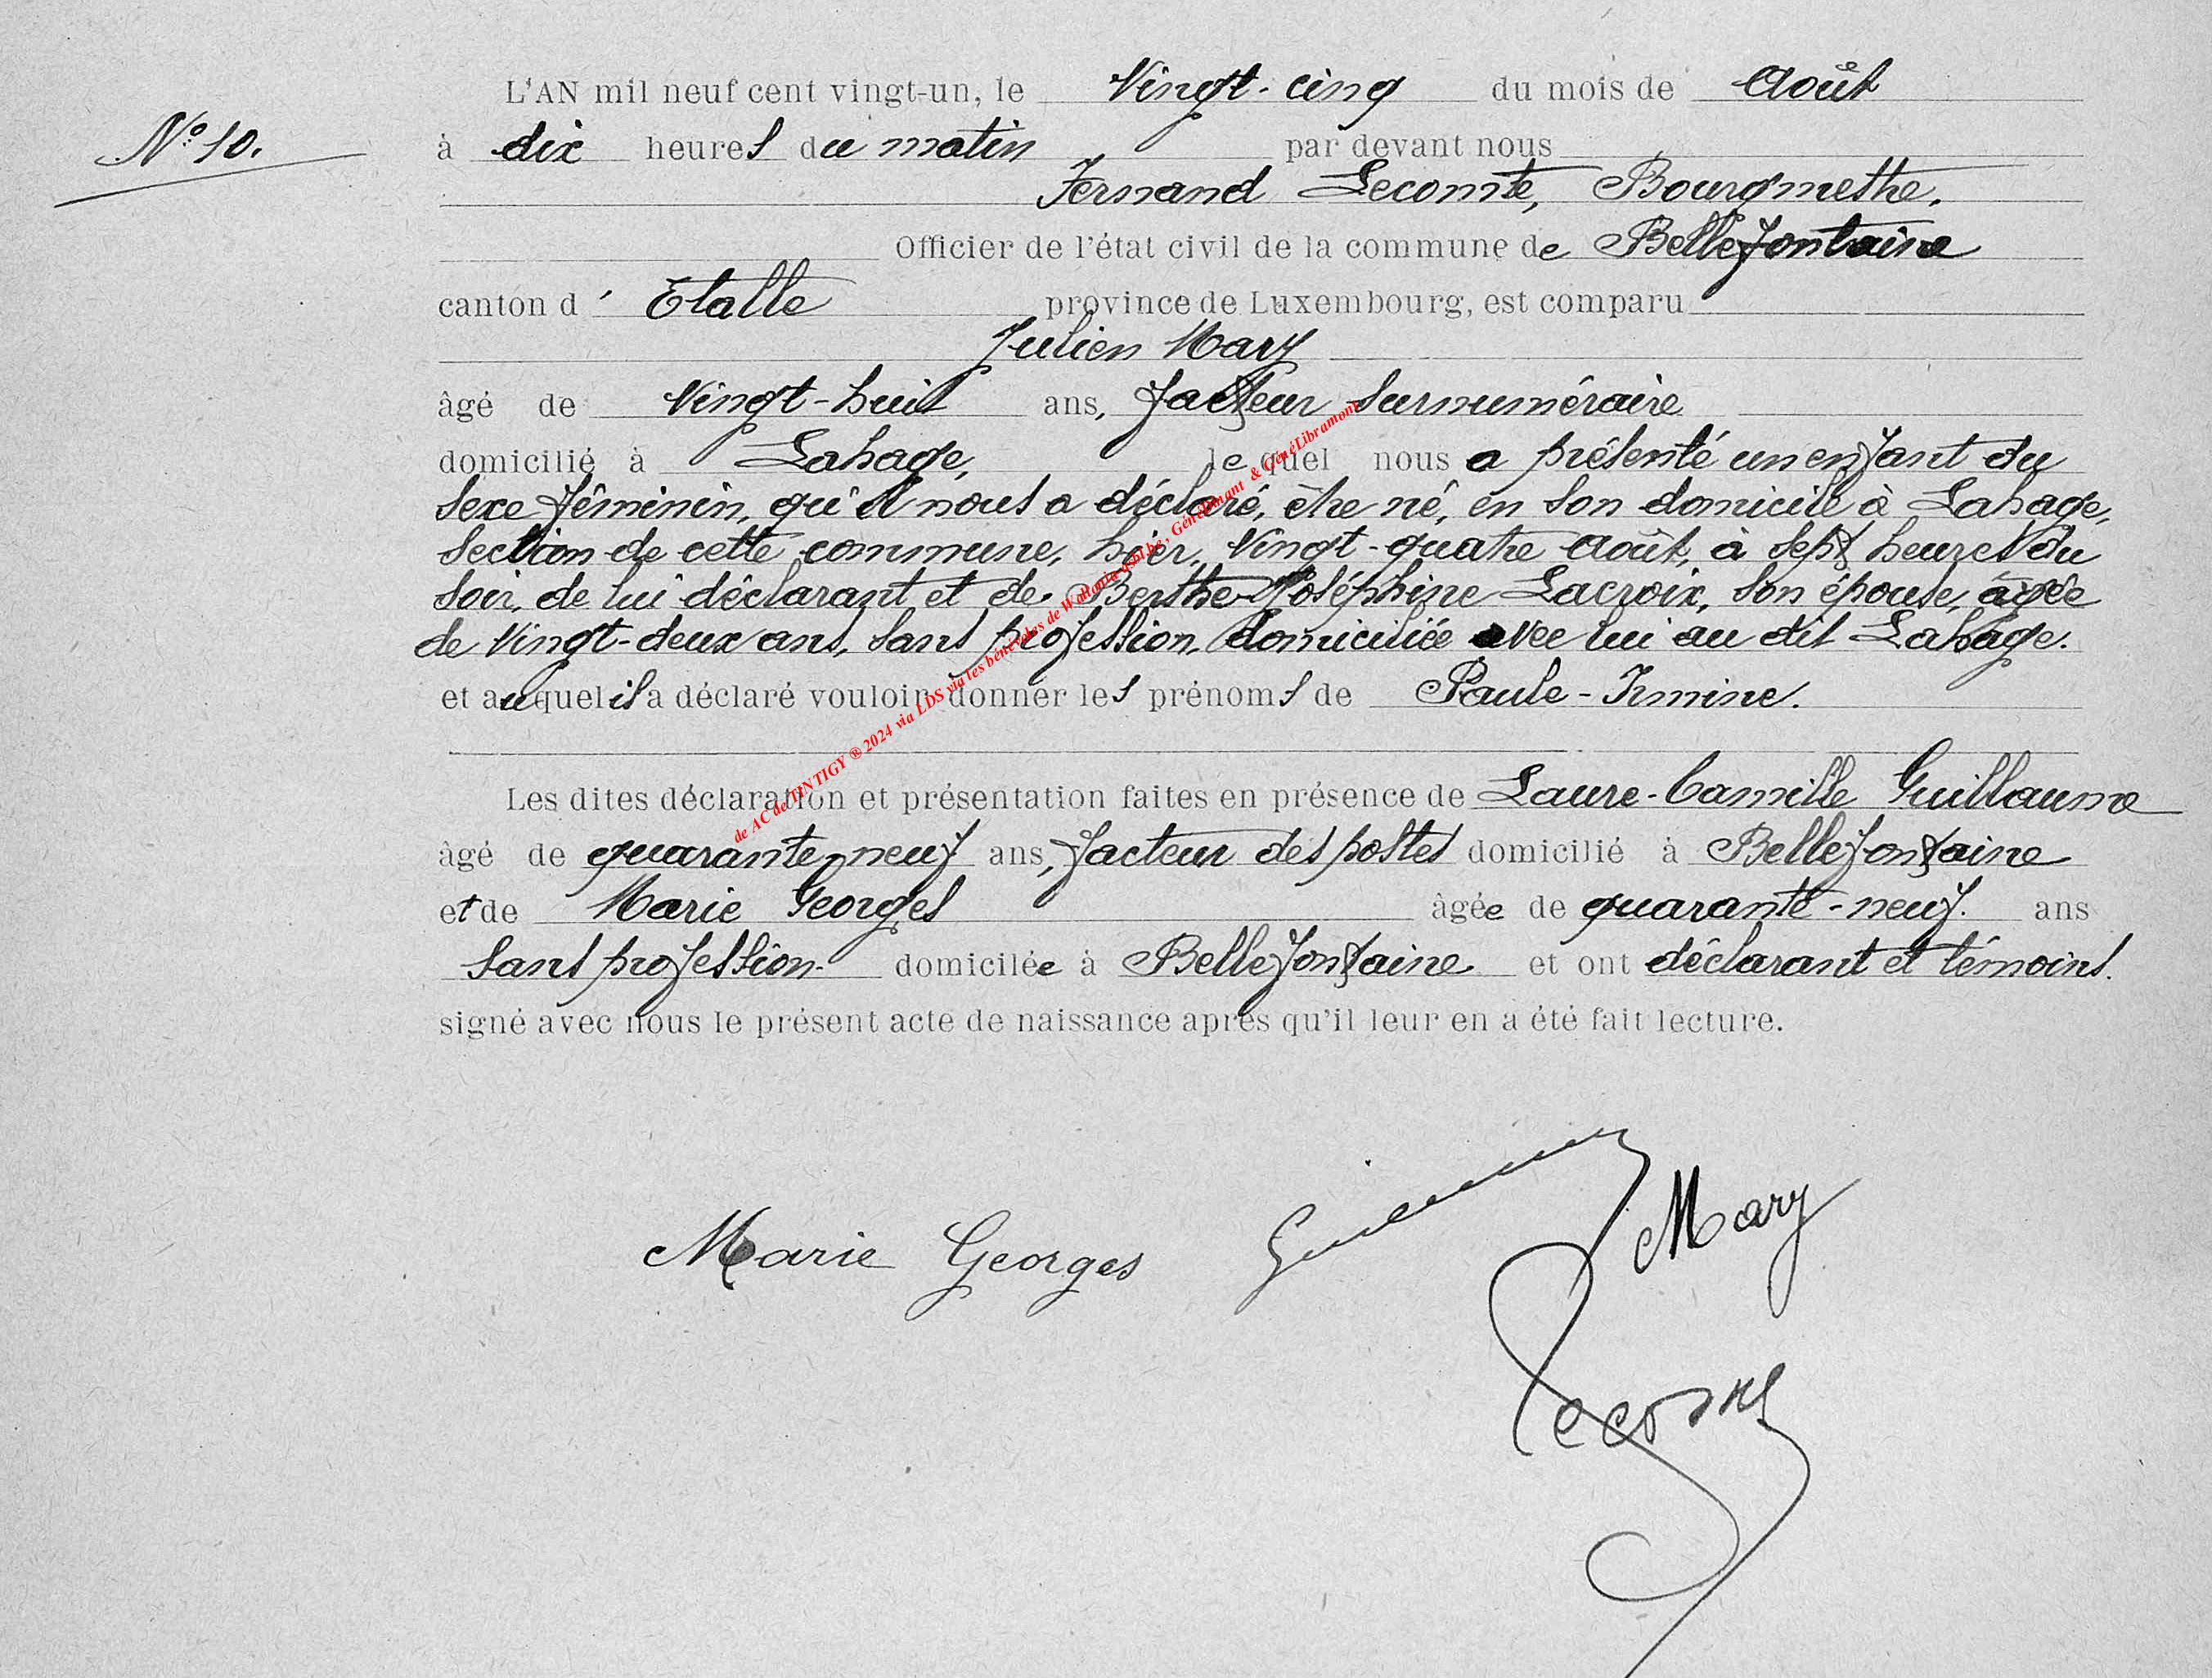 L'AN mil neuf cent vingt-un, le Vingt-cinq du mois de Août
N° 10.
à dix heures du matin par devant nous
Fernand Lecomte, Bourgmestre,
Officier de l'état civil de la commune de Bellefontaine
canton d'Etalle province de Luxembourg, est comparu
Julien Mary
âgé de Vingt-huit ans, facteur surnuméraire
domicilié à Lahage, lequel nous a présenté un enfant du
sexe féminin, qu'il nous a déclaré, être né, en son domicile à Lahage,
section de cette commune, hier, Vingt-quatre Août, à sept heures du
soir, de lui déclarant et de Berthe-Joséphine Lacroix, son épouse, âgée
de Vingt-deux ans, sans profession, domiciliée avec lui au dit Lahage.
et auquel il a déclaré vouloir donner les prénoms de Paule-Irmine.
Les dites déclaration et présentation faites en présence de Laure-Camille Guillaume
âgé de quarante-neuf ans, facteur des postes domicilié à Bellefontaine
et de Marie Georges âgée de quarante-neuf. ans
sans profession domicilée à Bellefontaine et ont déclarant et témoins.
signé avec nous le présent acte de naissance après qu'il leur en a été fait lecture.
Marie Georges Guillaume Mary
Lecomte
de AC de TINTIGY ® 2024 via LDS via les bénévoles de Wallonia asbl.be, GénéDinant & GénéLibramont